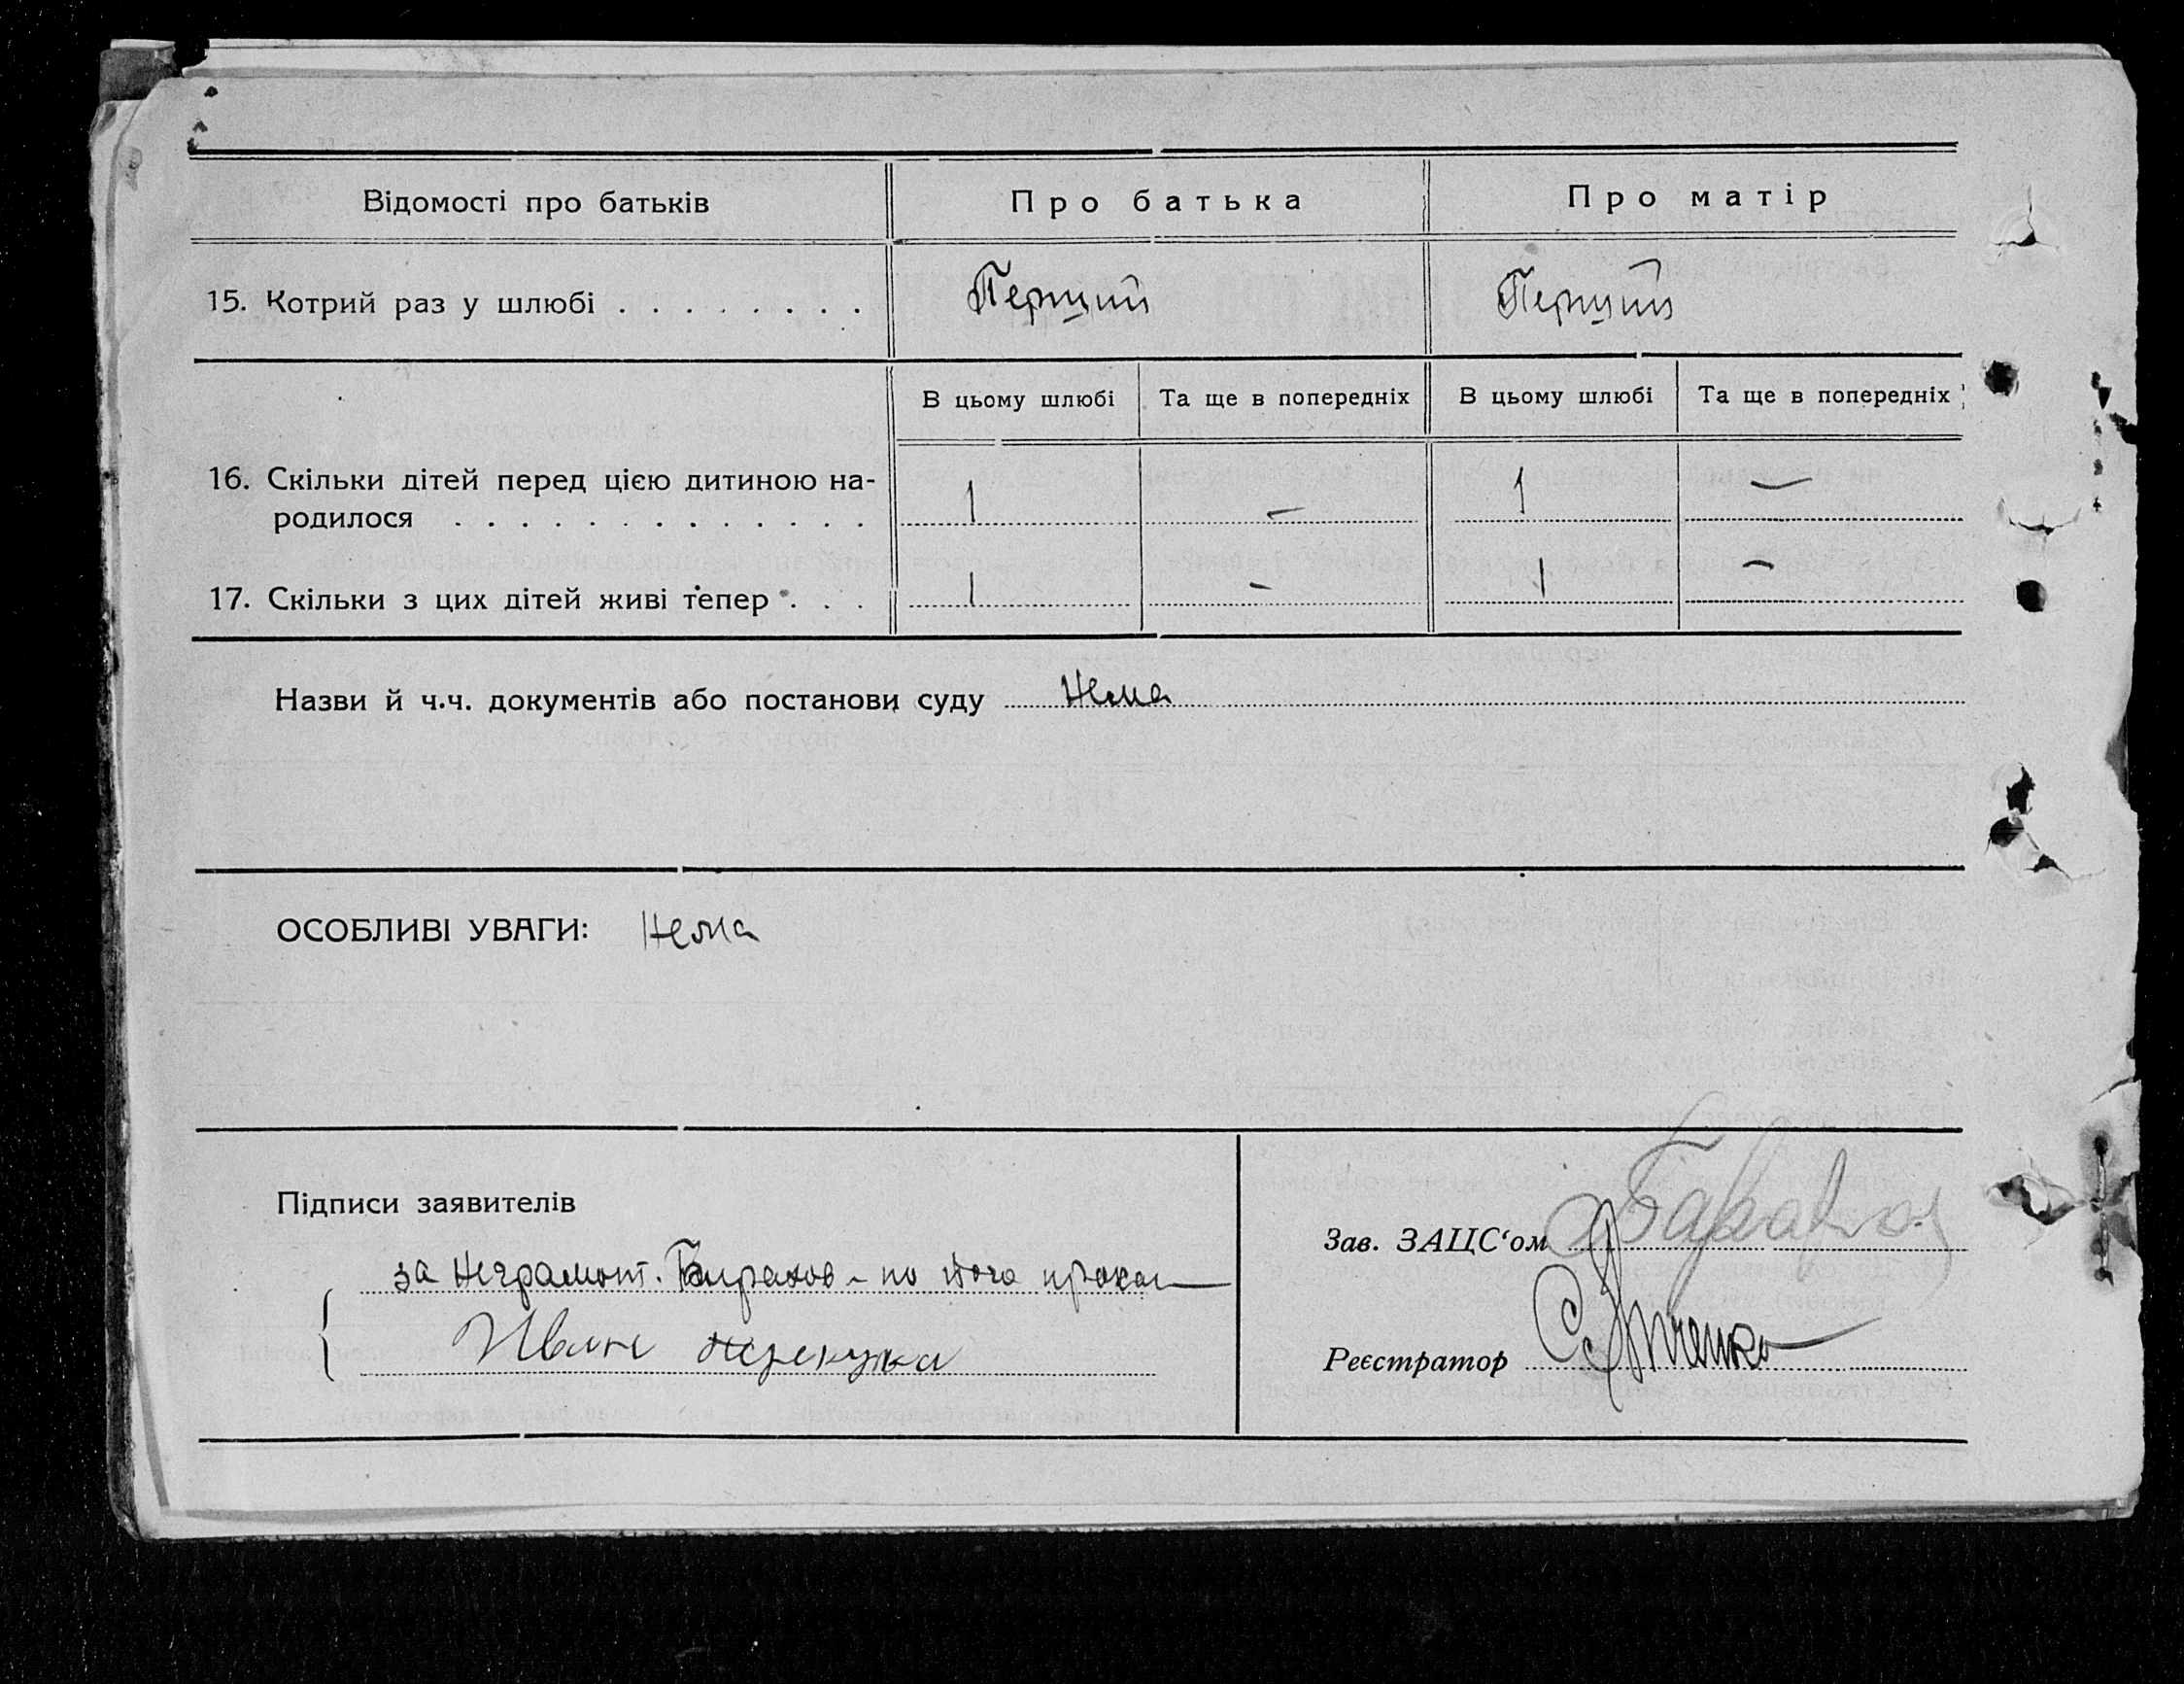 Відомості про батьків
Про батька
Про матір
15. Котрий раз у шлюбі . . . . . . . .
Перший
Перший
В цьому шлюбі
Та ще в попередніх
В цьому шлюбі
Та ще в попередніх
16. Скільки дітей перед цією дитиною на-
родилося . . . . . . . . . . . . .
1
–
1
–
17. Скільки з цих дітей живі тепер . . .
1
–
1
–
Назви й ч.ч. документів або постанови суду
Нема
ОСОБЛИВІ УВАГИ: Нема
Підписи заявителів
за неграмот. по його
Иван
Зав. ЗАЦС‘ом
Реєстратор